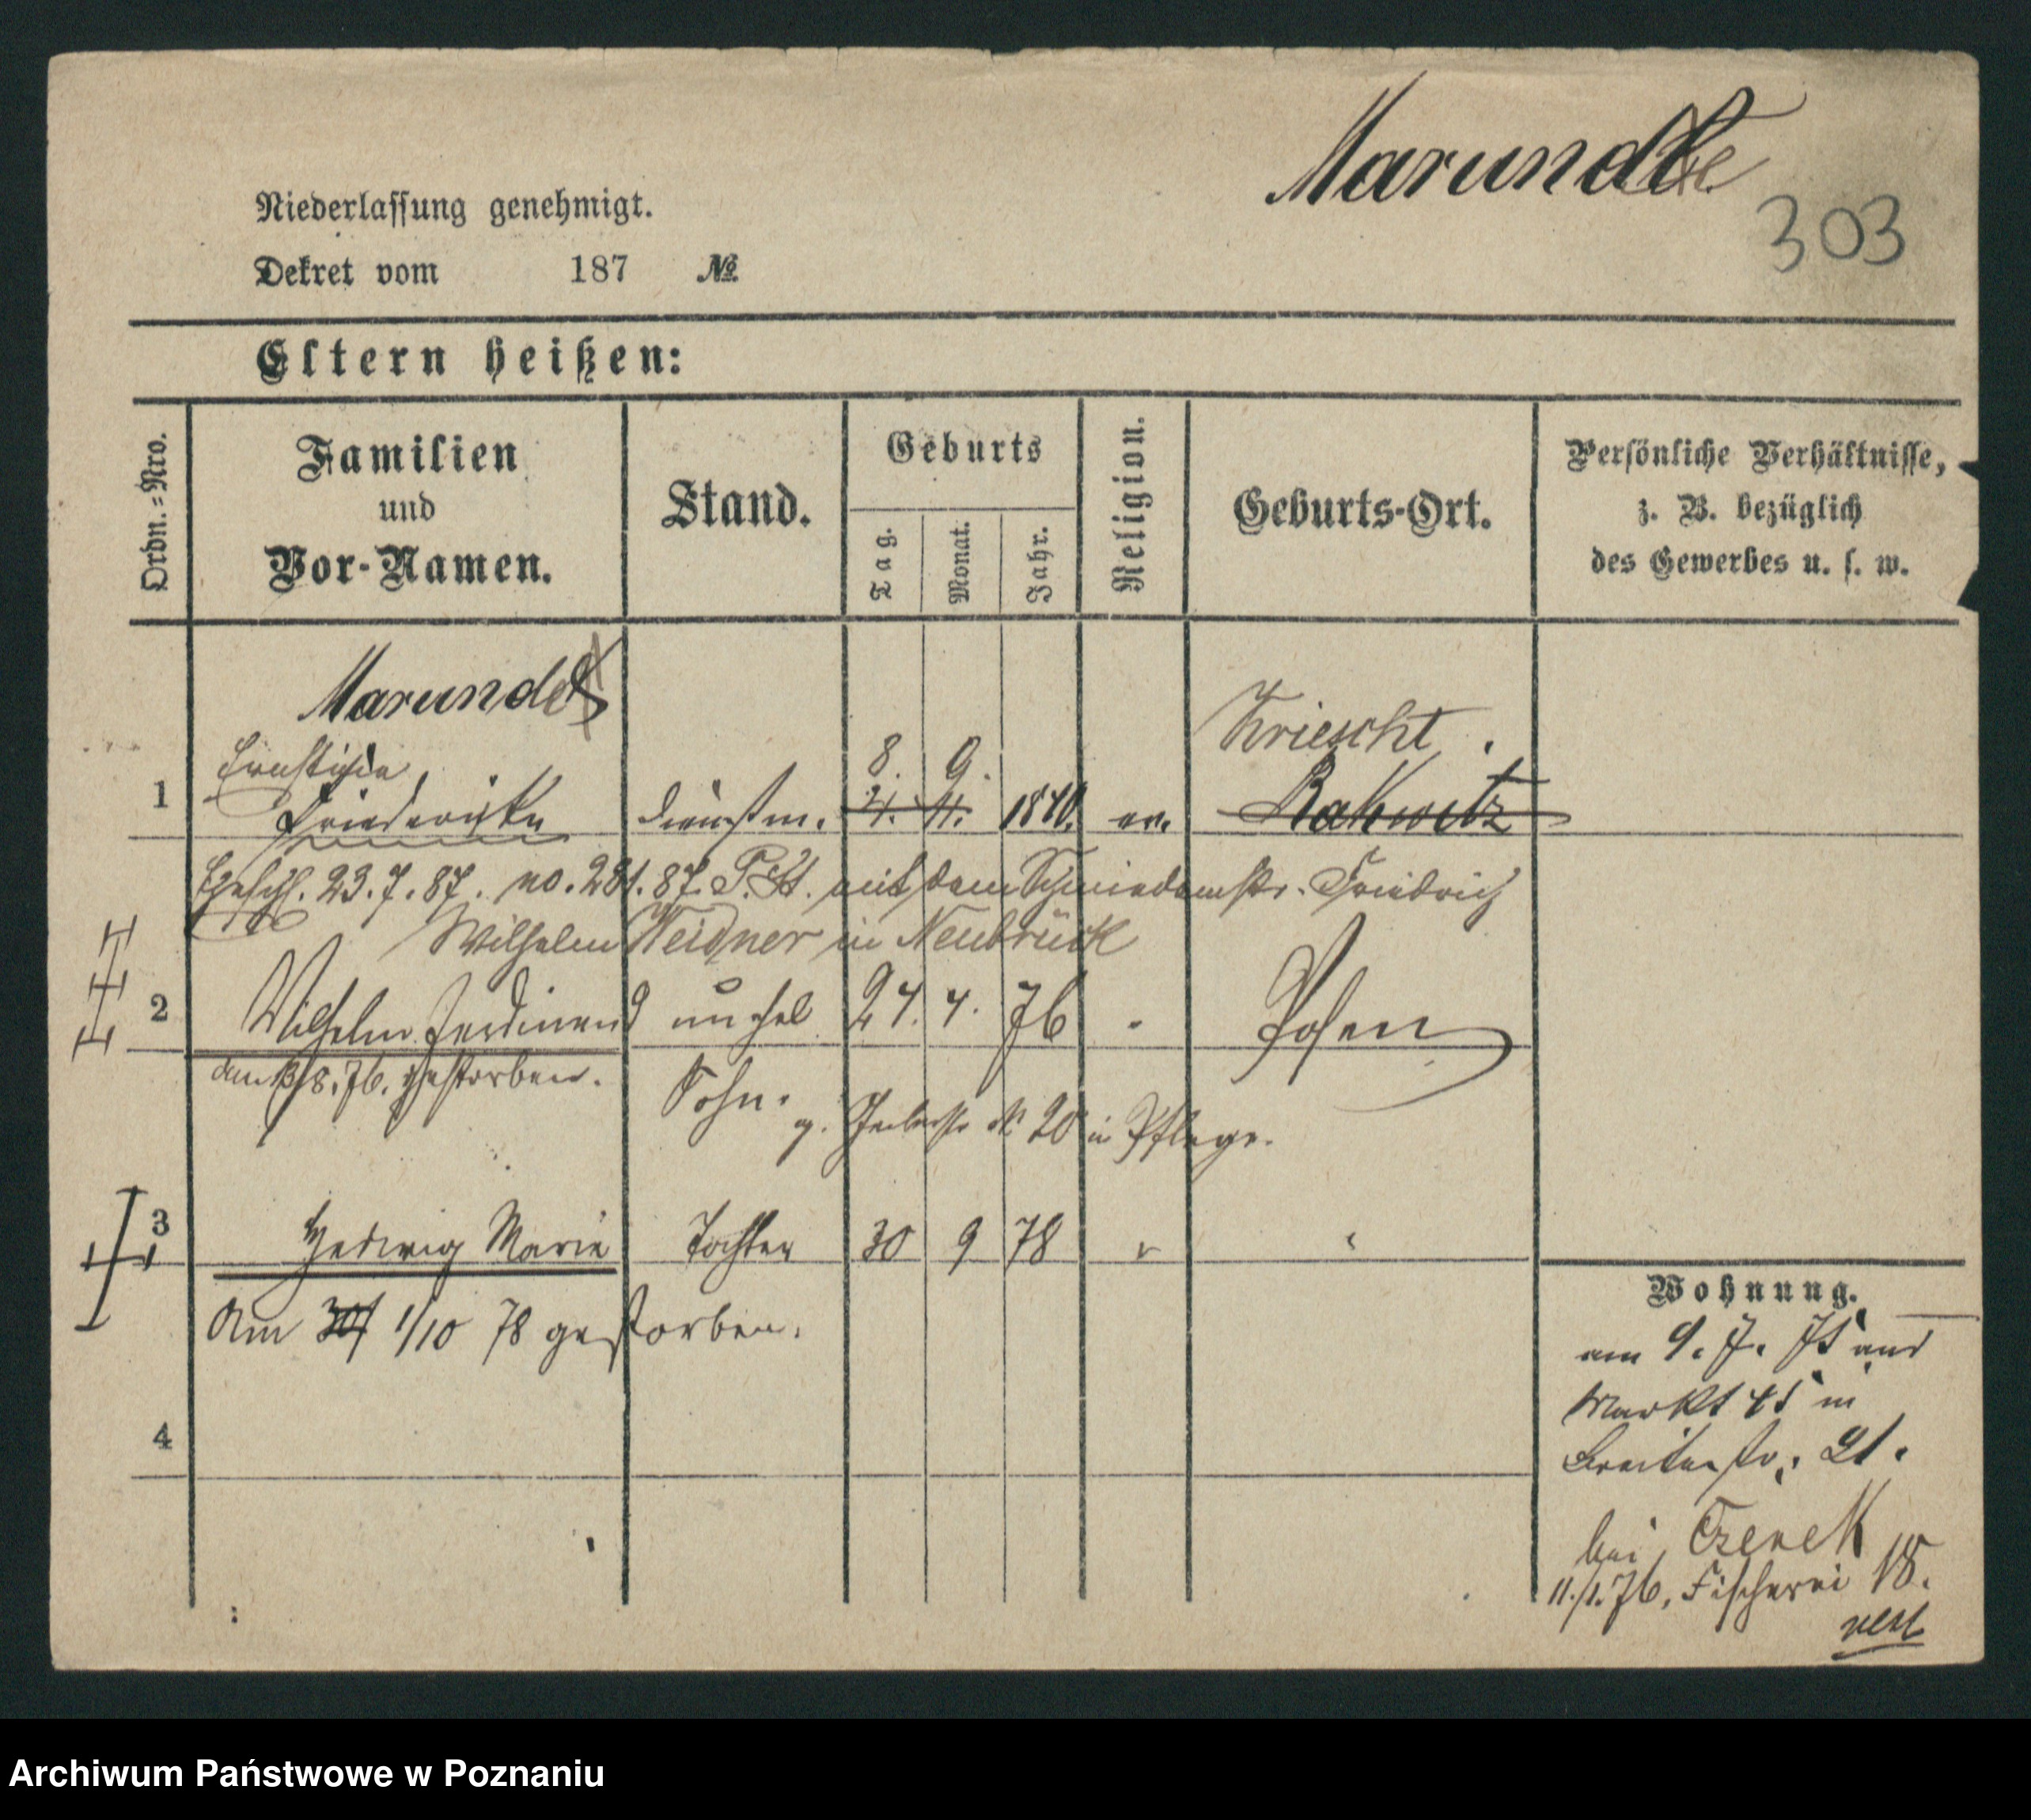 Marundke
303
Niederlassung genehmigt.
Dekret vom 187 №
Eltern heißen:
Ordn.=Nro.
Familien
und
Vor-Namen.
Stand.
Geburts
Tag.
Monat.
Jahr.
Religion.
Geburts-Ort.
Persönliche Verhältnisse,
z. B. bezüglich
des Gewerbes u. s. w.
Marunde
Kriescht.
Ernstine
8. 9.
1 Friederike dienstm. 4. 4. ev. Rakwitz
23.7.87. no. 281.87. mit dem Schmiedemstr. Friedrich
Wilhelm Weidner in Neubrück
2 Wilhelm Ferdinand unehel 24. 4. 76 " Posen
8.76. gestorben.
Sohn.
20 in Pflege.
3 Hedwig Marie Tochter 30 9 78 " "
Am 30/ 1/10 78 gestorben.
4
Wohnung.
am 9. 7. 75 aus
Markt 45 in
Breitestr. 21.
bei Czenek
11./1.76, Fischerei 18.